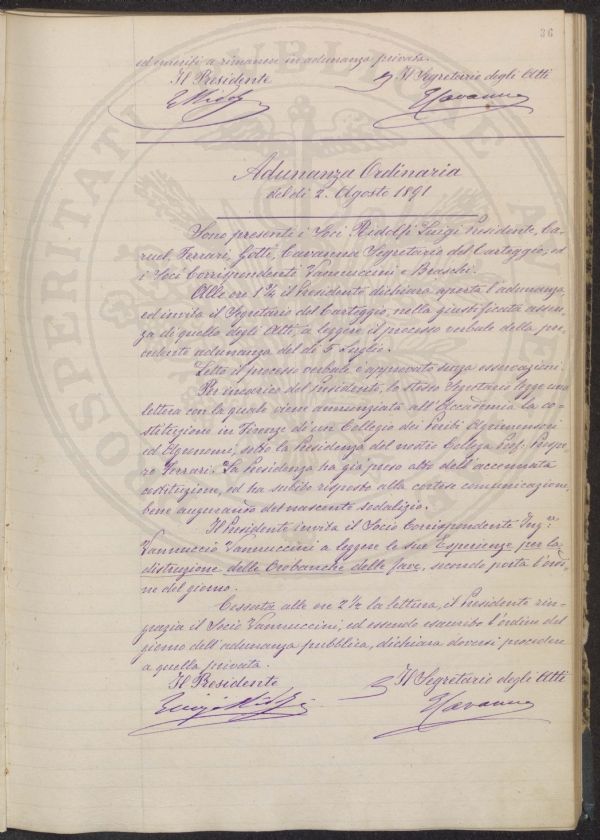 36
ed inviti a rimanere in adunanza privata.
Il Presidente Il Segretario degli Atti
Adunanza Ordinaria
del dì 2. Agosto 1891
Sono presenti i Soci Ridolfi Luigi Presidente, Ca-
ruel, Ferrari, Gotti, Cavanna Segretario del Carteggio; ed
i Soci Corrispondenti Vannuccini e Braschi.
Alle ore 1 ¼ il Presidente dichiara aperta l'adunanza,
ed invita il Segretario del Carteggio, nella giustificata assen-
za di quello degli Atti, a leggere il processo verbale della pre-
cedente adunanza del dì 5 Luglio.
Letto il processo verbale è approvato senza osservazioni.
Per incarico del Presidente, lo stesso Segretario legge una
lettera con la quale viene annunziata all'Accademia la co-
stituzione in Firenze di un Collegio dei Periti Agrimensori
ed Agronomi, sotto la Presidenza del nostro Collega Prof. Prospe-
ro Ferrari. La Presidenza ha già preso atto dell'accennata
costituzione, ed ha subito risposto alla cortese comunicazione,
bene augurando del nascente sodalizio.
Il Presidente invita il Socio Corrispondente Ing.re
Vannuccio Vannuccini a leggere le sue Esperienze per la
distruzione delle Orobanche delle fave, secondo porta l'ordi-
ne del giorno.
Cessata alle ore 2 ½ la lettura, il Presidente rin-
grazia il Socio Vannuccini, ed essendo esaurito l'ordine del
giorno dell'adunanza pubblica, dichiara doversi procedere
a quella privata.
Il Presidente Il Segretario degli Atti
Luigi Ridolfi Cavanna
PROSPERITATI PUBLICAE AUGENDAE